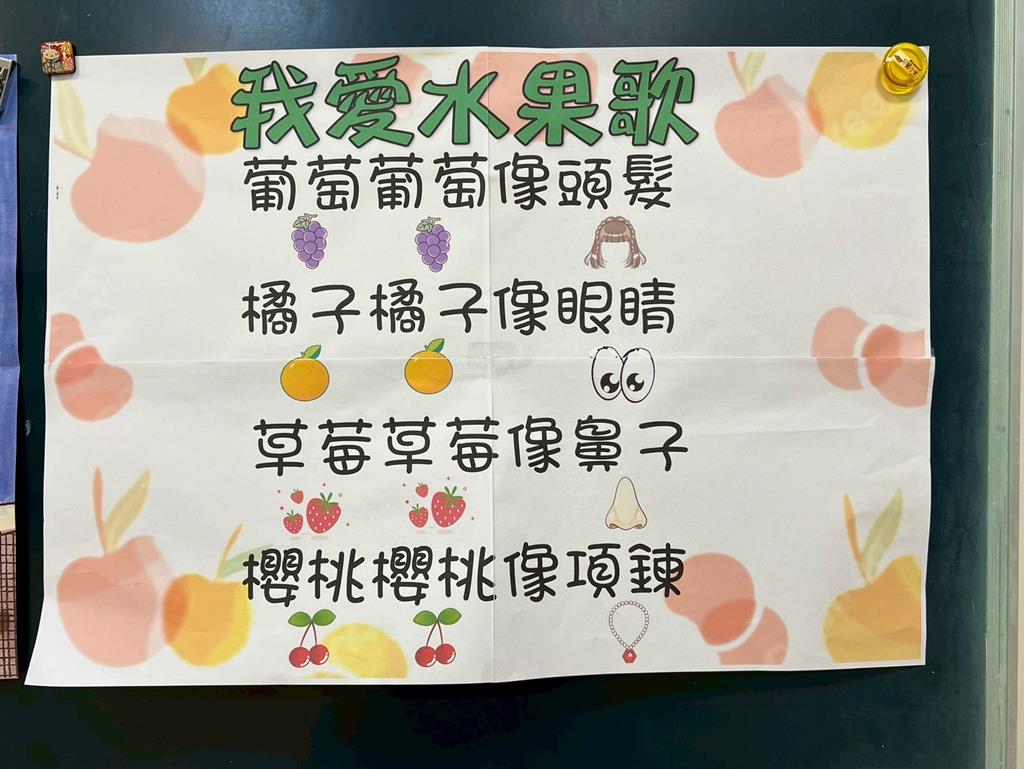 我愛水果歌
葡萄葡萄像頭髮
橘子橘子像眼睛
草莓草莓像鼻子
櫻桃櫻桃像項鍊